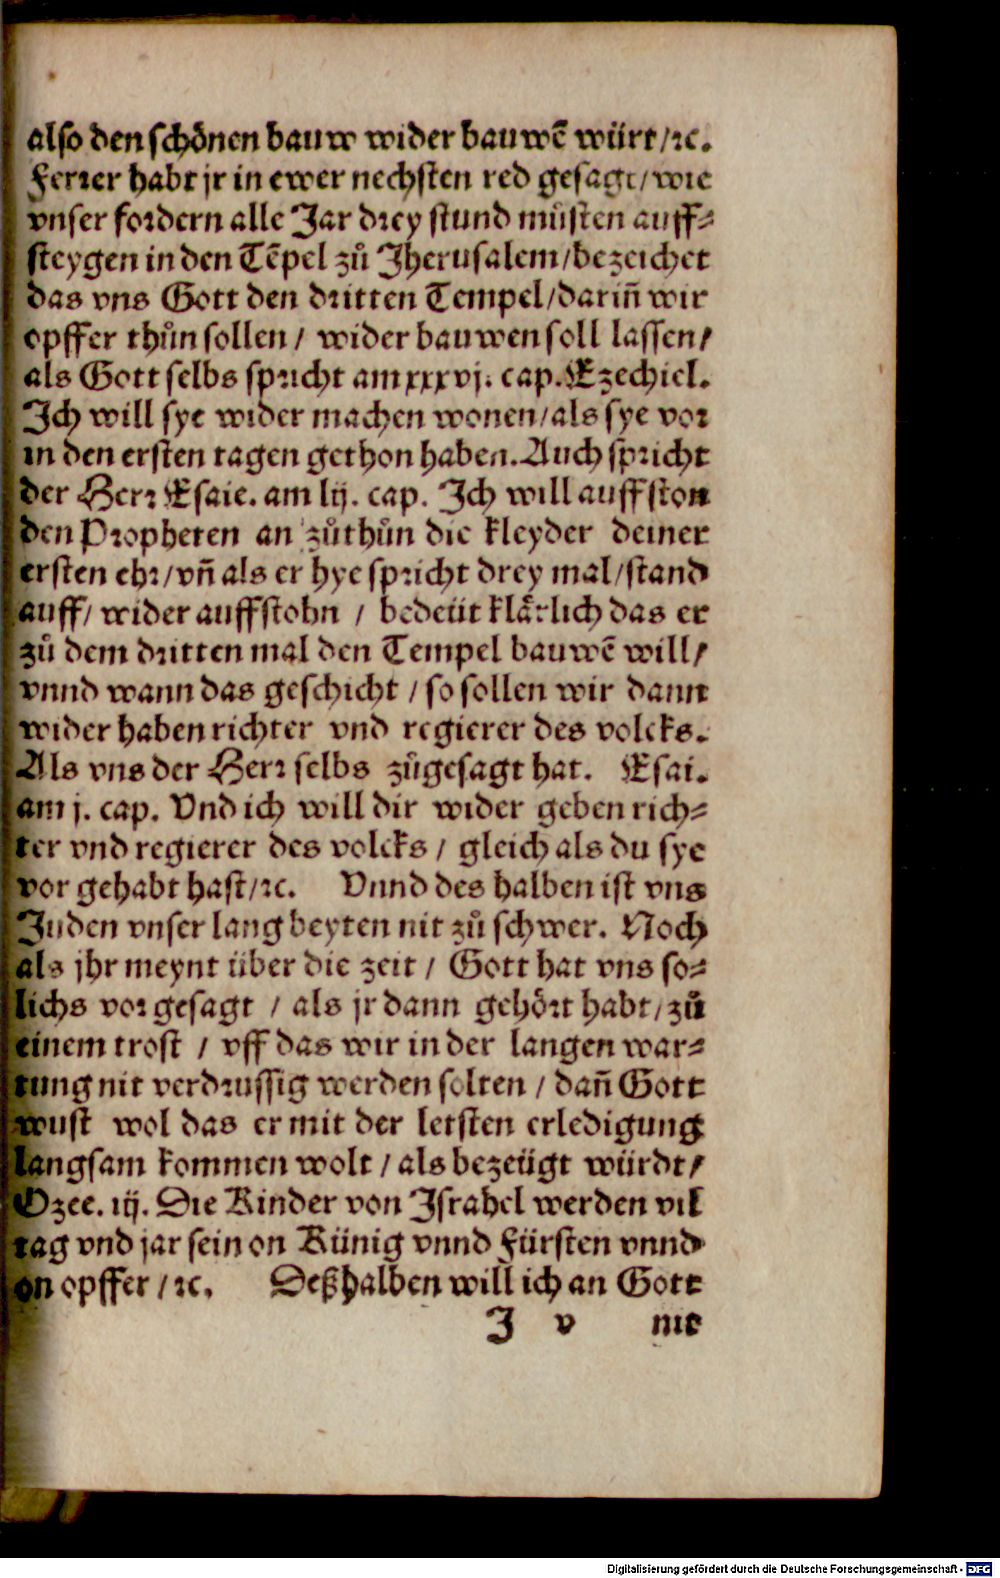 also den schönen bauw wider bauwē würt/ꝛc.
Ferrer habt jr in ewer nechsten red gesagt/wie
vnser fordern alle Jar drey stund müsten auff⸗
steygen in den Tēpel zů Jherusalem/bezeichet
das vns Gott den dritten Tempel/dariñ wir
opffer thůn sollen/ wider bauwen soll lassen/
als Gott selbs spricht am xxxvj. cap. Ezechiel.
Jch will sye wider machen wonen/als sye vor
in den ersten tagen gethon haben. Auch spricht
der Herr Esaie. am lij. cap. Jch will auffston
den Propheten an zůthůn die kleyder deiner
ersten ehr/vñ als er hye spricht drey mal/stand
auff/ wider auffstohn / bedeüt klärlich das er
zů dem dritten mal den Tempel bauwē will/
vnnd wann das geschicht / so sollen wir dann
wider haben richter vnd regierer des volcks.
Als vns der Herr selbs zůgesagt hat. Esai.
am j. cap. Vnd ich will dir wider geben rich⸗
ter vnd regierer des volcks / gleich als du sye
vor gehabt hast/ꝛc. Vnnd des halben ist vns
Juden vnser lang beyten nit zů schwer. Noch
als jhr meynt über die zeit / Gott hat vns so⸗
lichs vor gesagt / als jr dann gehört habt/ zů
einem trost / vff das wir in der langen war⸗
tung nit verdrussig werden solten / dañ Gott
wust wol das er mit der letsten erledigung
langsam kommen wolt / als bezeügt würdt/
Ozee. iij. Die Kinder von Jsrahel werden vil
tag vnd jar sein on Künig vnnd Fürsten vnnd
on opffer / ꝛc. Deßhalben will ich an Gott
J v nit
Digitalisierung gefördert durch die Deutsche Forschungsgemeinschaft - DFG